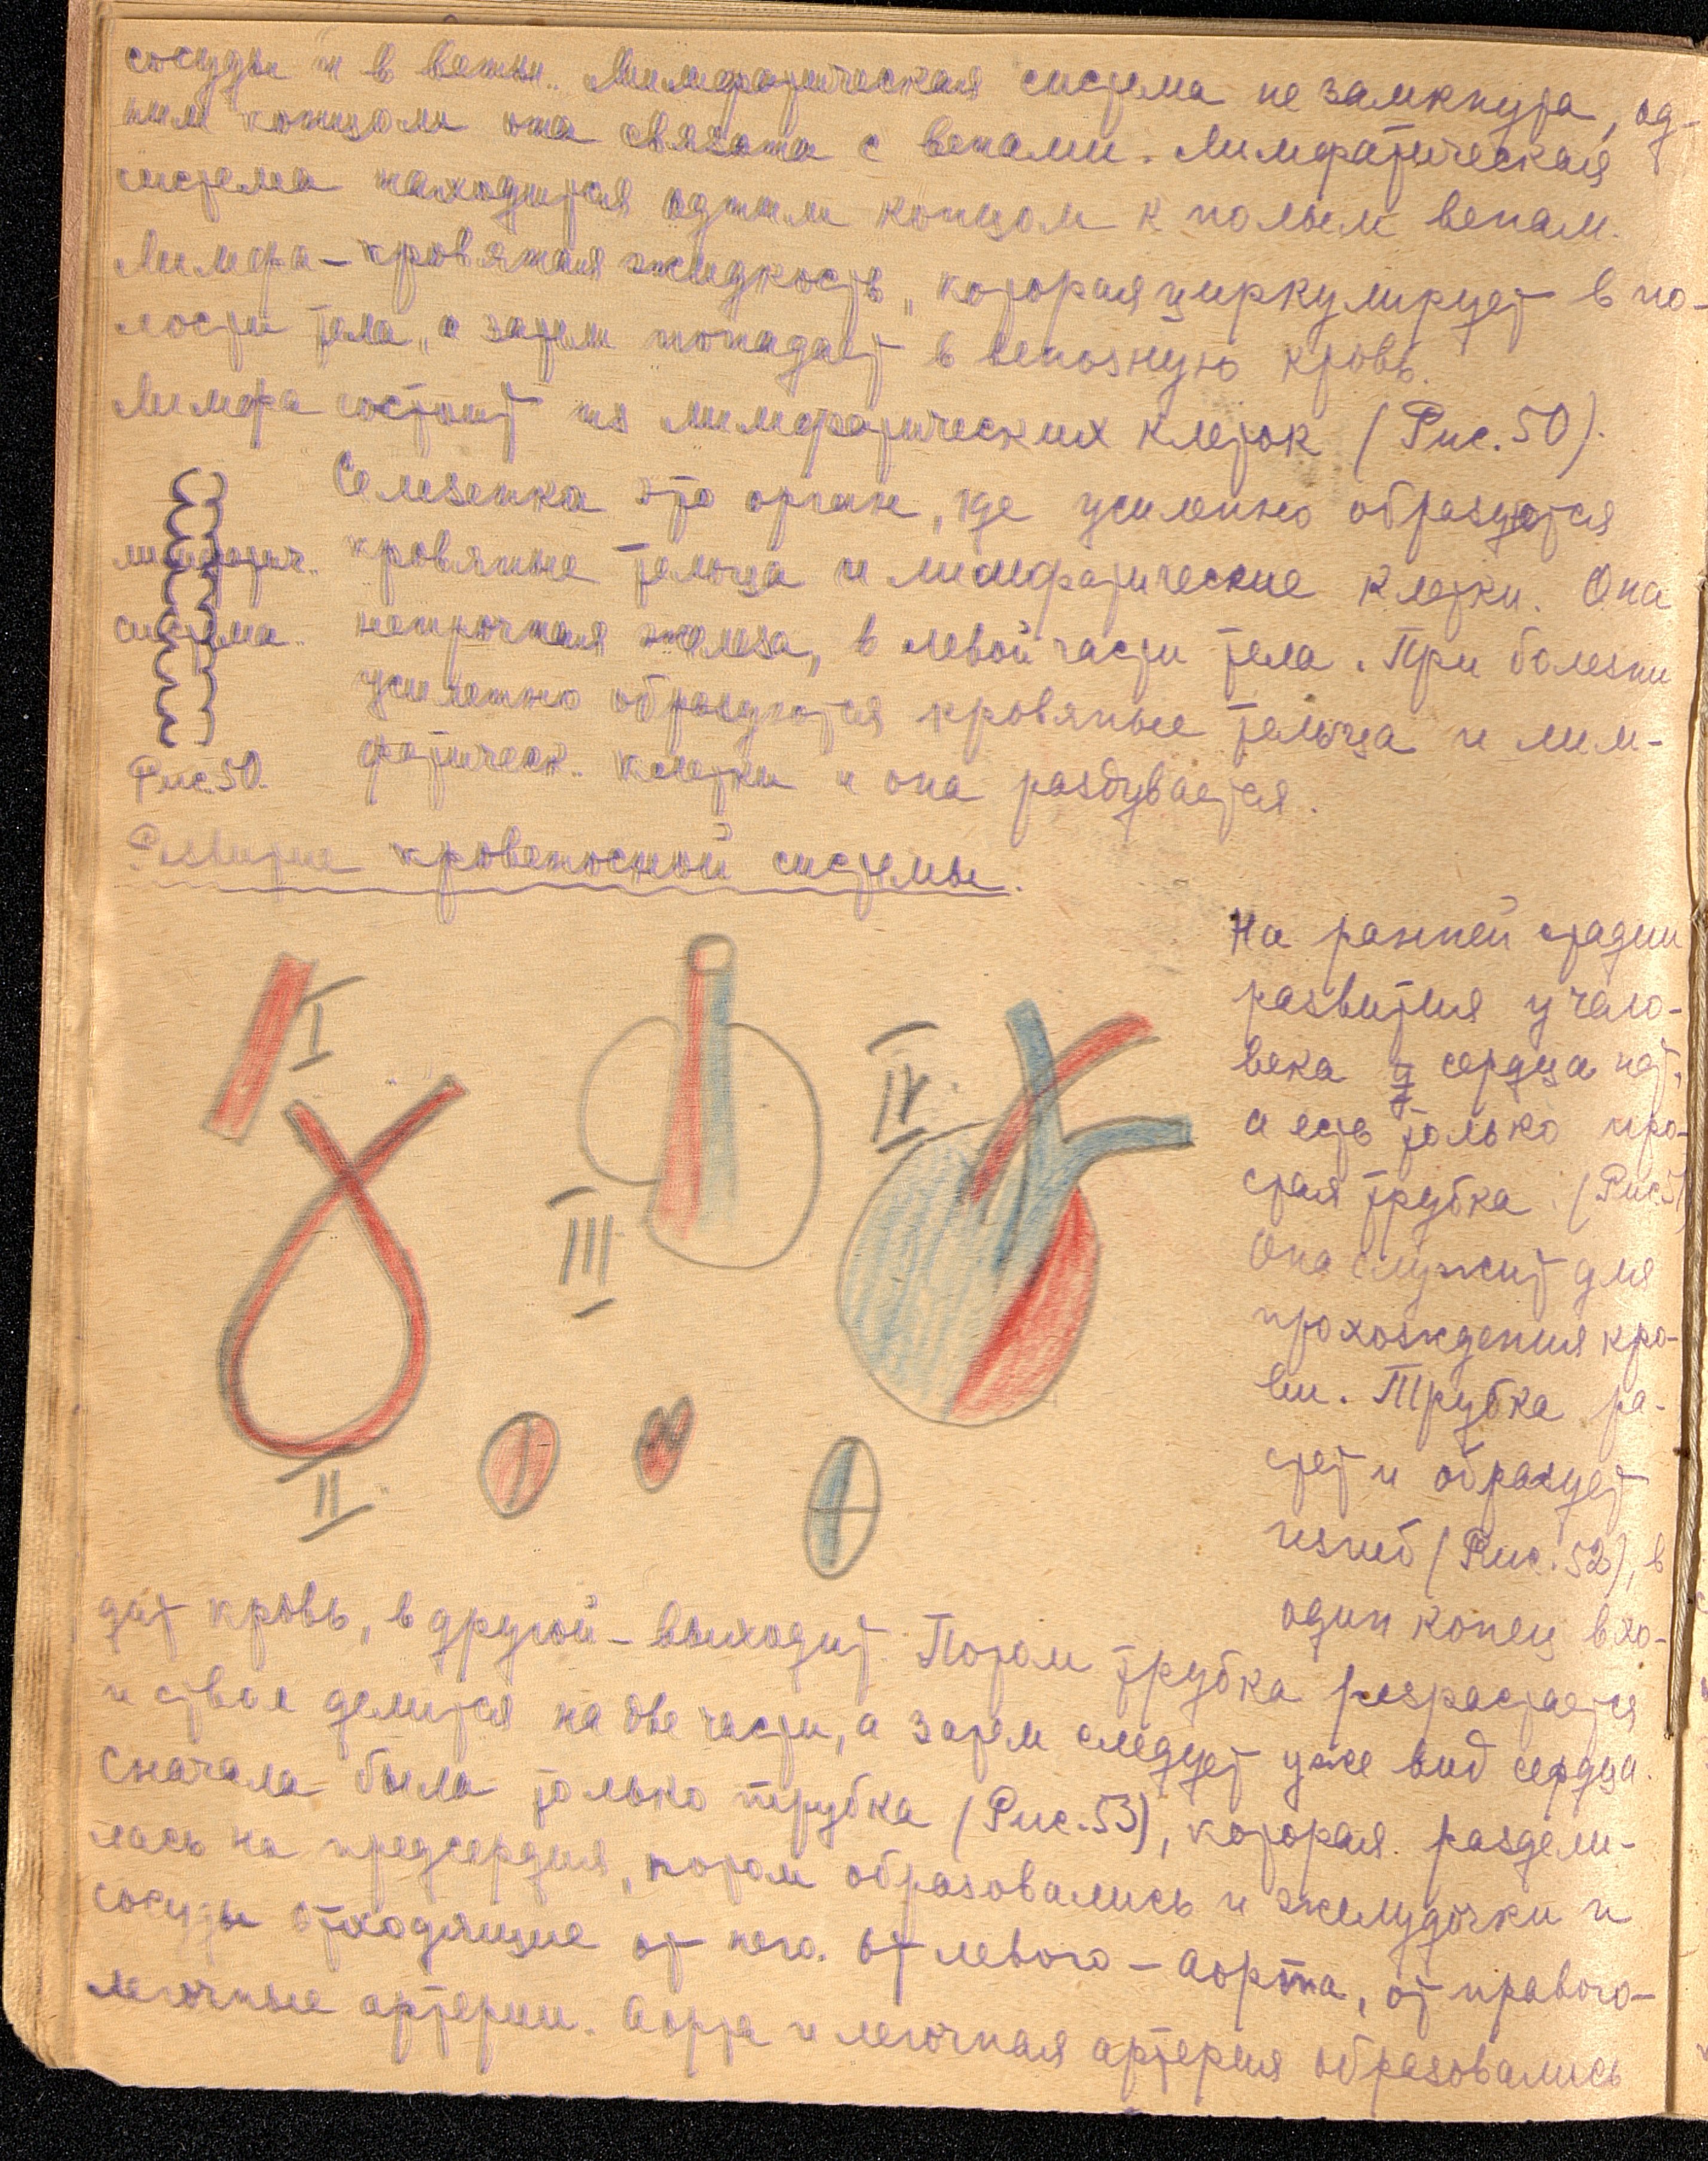 сосуды и в вены. Лимфатическая система не замкнута, од-
ним концом она связана с венами. Лимфатическая
система находится одним концом к полым венам.
Лимфа – кровяная жидкость, которая циркулирует в по-
лости тела, а затем попадает в венозную кровь.
Лимфа состоит из лимфатических клеток (Рис. 50).
Селезенка это орган, где усиленно образуются
кровяные тельца и лимфатические клетки. Она
непрочная железа, в левой части тела. При болезни
усиленно образуются кровяные тельца и лим-
фатическ. клетки и она раздувается.
лимфатич.
система.
Рис. 50.
кровеносной системы.
На ранней стадии
развития у чело-
века у сердца нет,
а есть только про-
стая трубка (Рис. 51)
Она служит для
прохождения кро-
ви. Трубка ра-
стет и образует
изгиб (Рис. 52), в
один конец вхо-
I
II
III
IV
дит кровь, в другой – выходит. Потом трубка разрастается
и ствол делится на две части, а затем следует уже вид сердца.
Сначала была только трубка (Рис. 53), которая разде­ли-
лась на предсердия, потом образовались и желудочки и
сосуды отходящие от него. От левого – аорта, от правого –
легочные артерии. Аорта и легочная артерия образовались